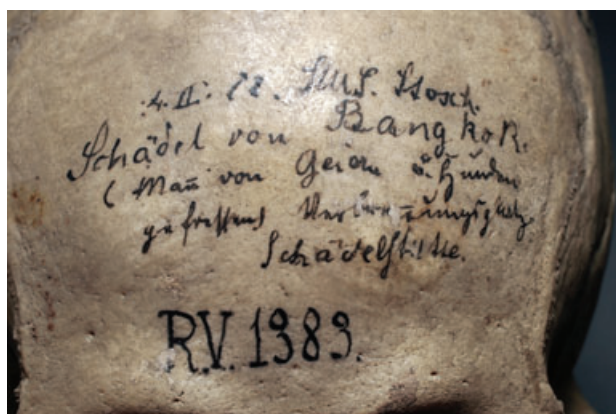 S.M.S. Stosch.
Schädel von Bangkok.
(Mañ von Geiern u. Hunden
gefressen)
Schädelstätte.
R.V. 1383.